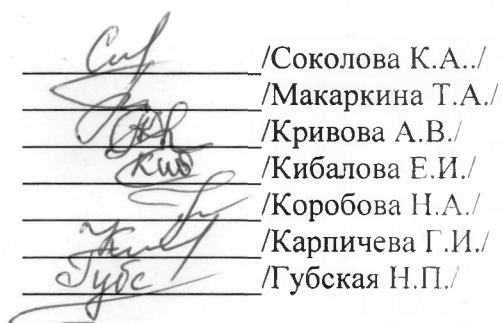 /Соколова К.А../
/Макаркина Т.А./
/Кривова А.В./
Киб /Кибалова Е.И./
/Коробова Н.А./
/Карпичева Г.И./
Губс /Губская Н.П./